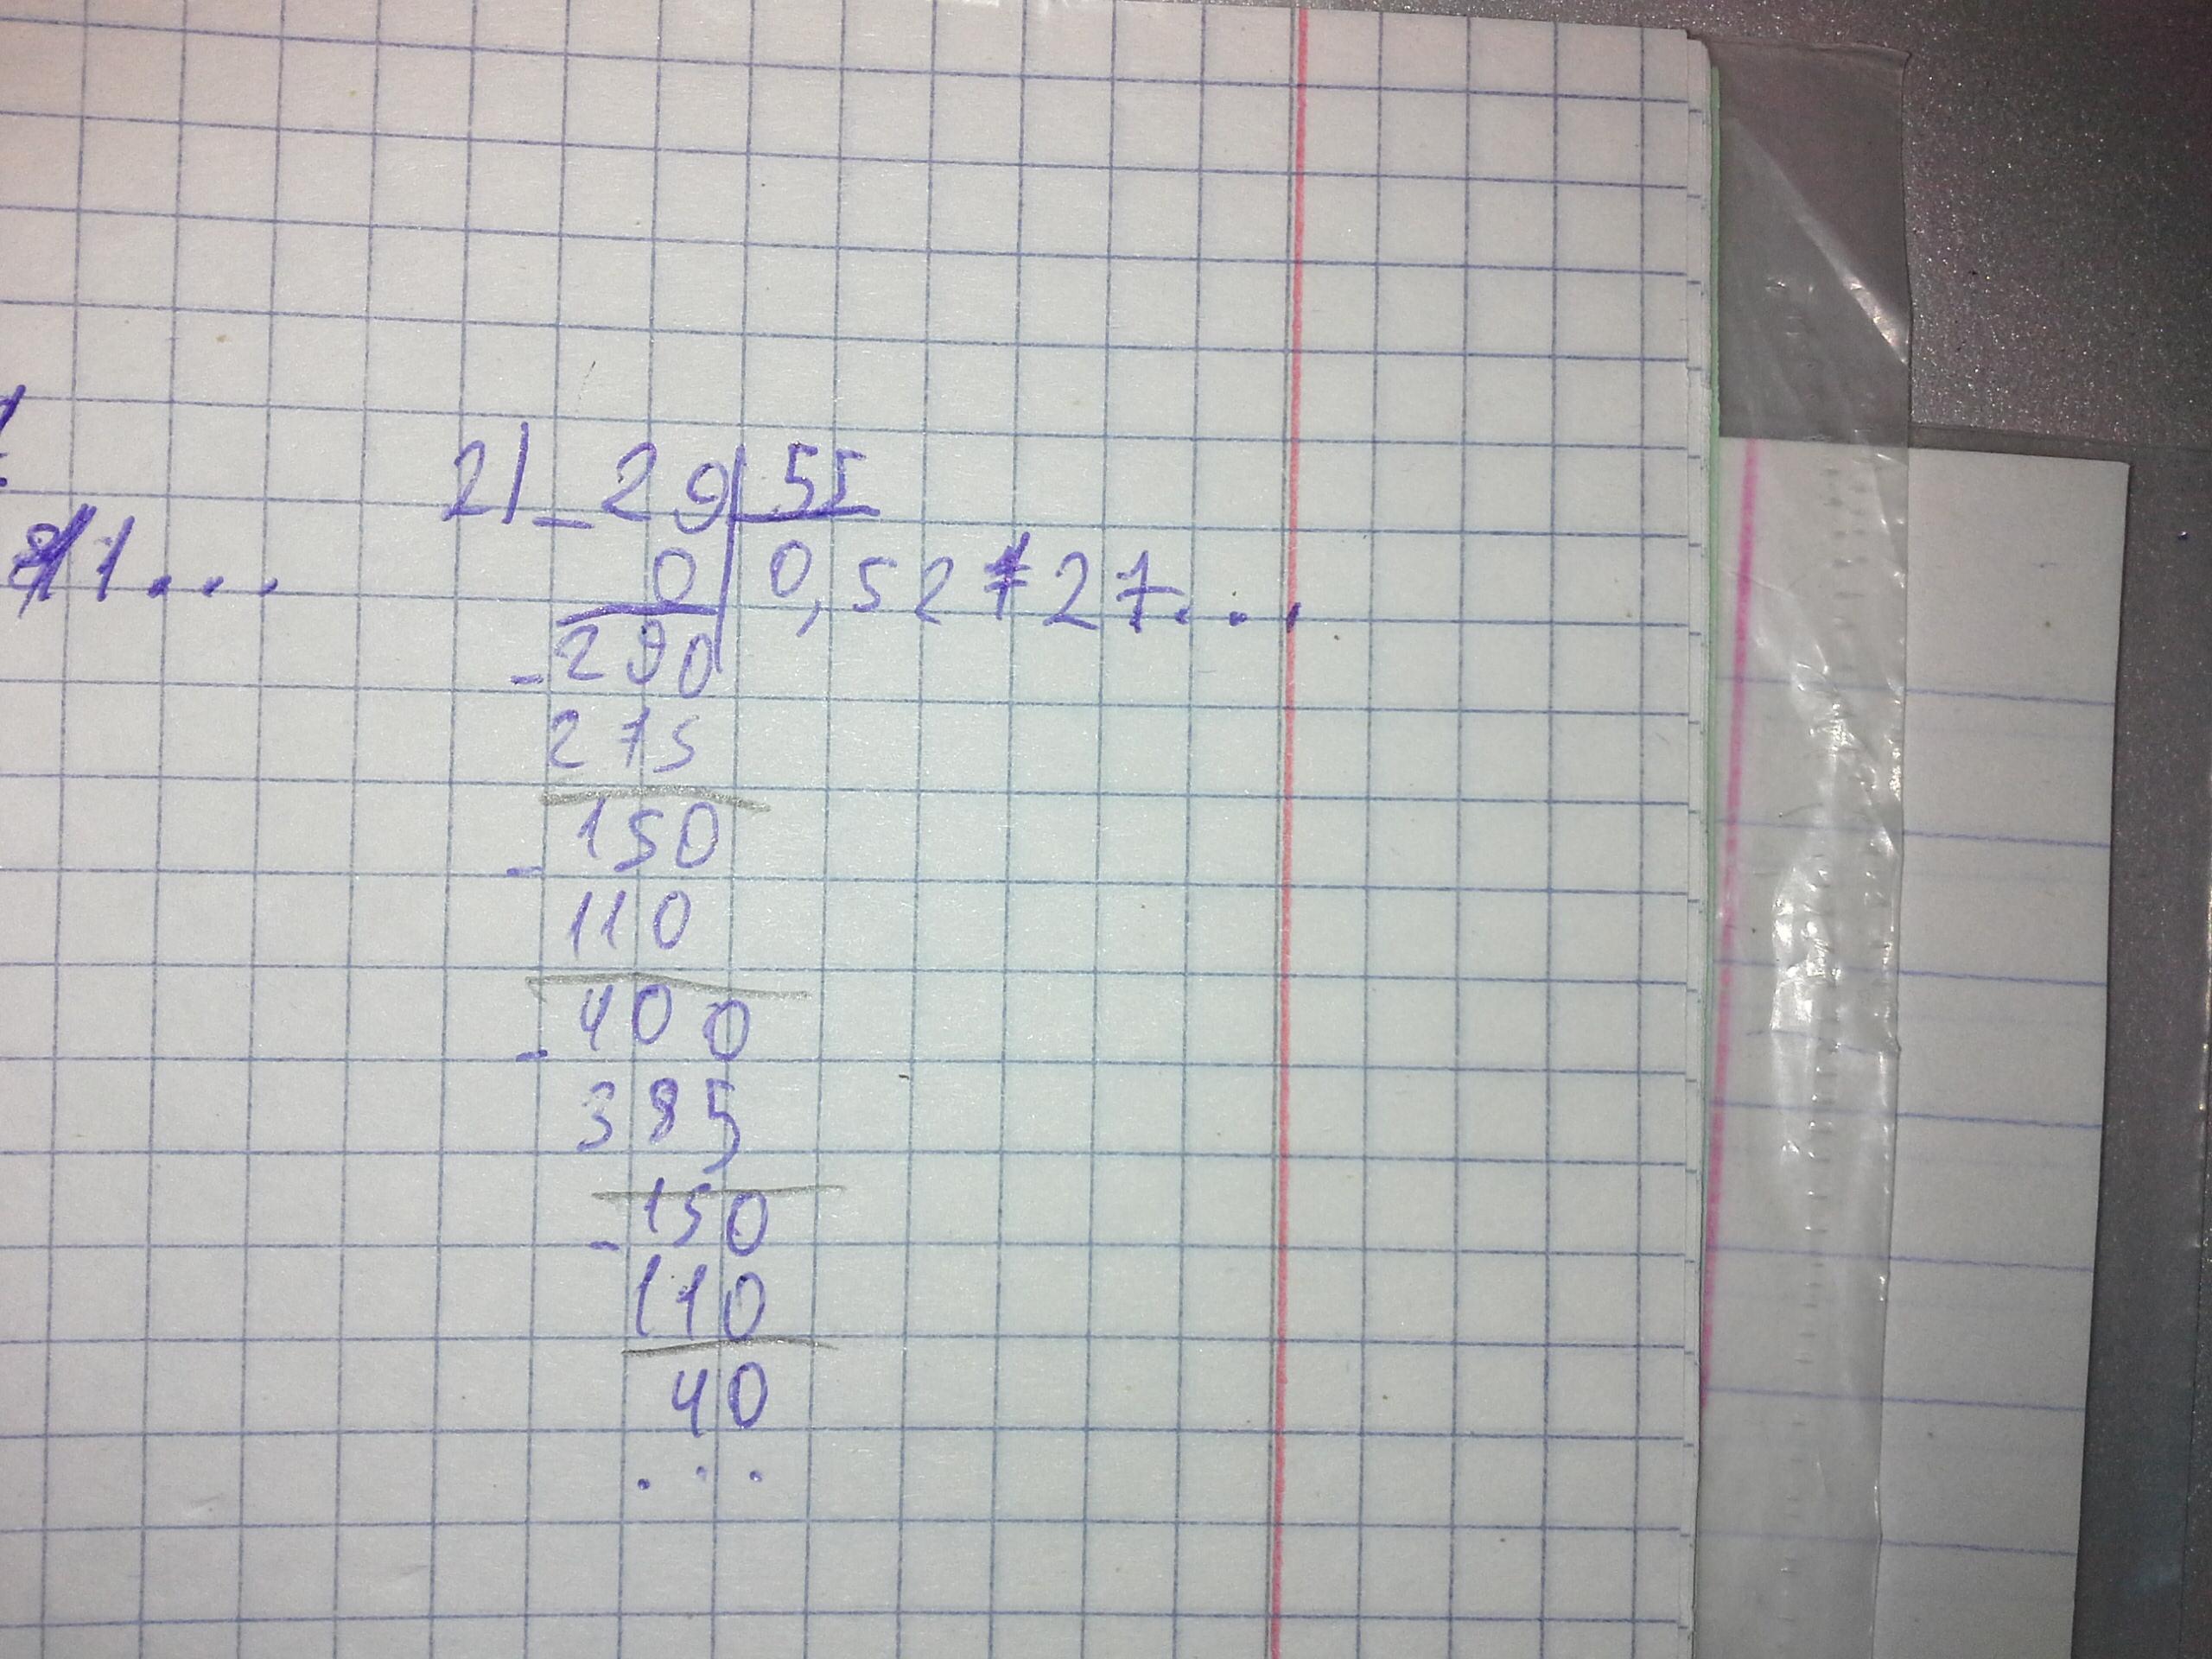 2) - 29 | 55
0 | 0,52727...
- 290
275
- 150
110
- 400
385
- 150
110
40
...
1...